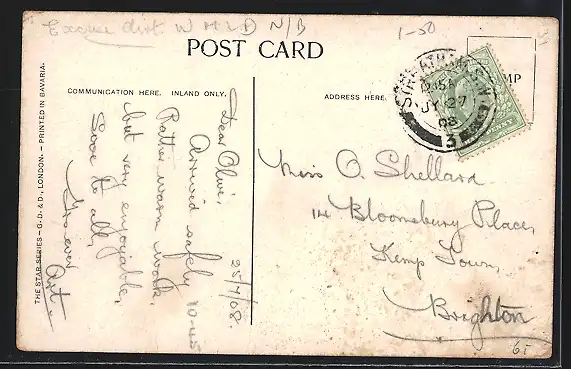 Excuse dirt W H & D N/B
1-50
POST CARD
COMMUNICATION HERE. INLAND ONLY.
ADDRESS HERE.
STREATHAM
JY 27
08
3
THE STAR SERIES – G.D.&D., LONDON. – PRINTED IN BAVARIA.
25/7/08.
Dear Olive,
Arrived safely 10-45
Rather warm work,
but very enjoyable,
Love to all,
Yrs ever
Art.
Miss O. Shellard
14 Bloomsbury Place,
Kemp Town,
Brighton
6/-